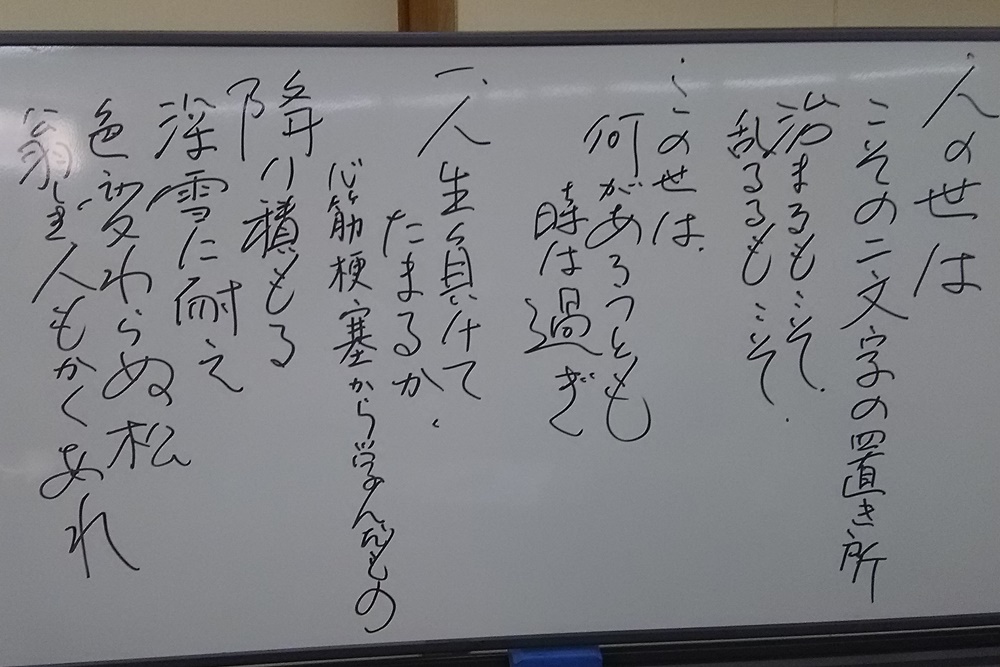 人の世は
こその二文字の置き所
治まるもこそ、
乱るるもこそ、
この世は、
何があろうとも
時は過ぎ
一、人生負けて
たまるか、
心筋梗塞から学んだもの
降り積もる
深雪に耐え
色変わらぬ松
人もかくあれ